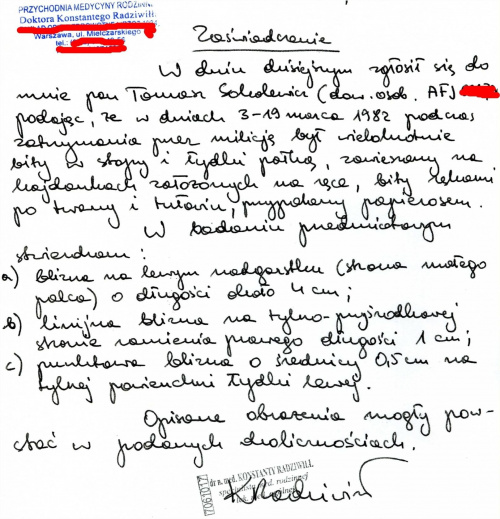 PRZYCHODNIA MEDYCYNY RODZIN
Doktora Konstantego Radziwiłł
Warszawa, ul. Mielczarskiego
tel.:
Zaświadczenie
W dniu dzisiejszym zgłosił się do
mnie pan Tomasz Sokolewicz (dow. osob. AFJ
podając, że w dniach 3-19 marca 1982 podczas
zatrzymania przez milicję był wielokrotnie
bity w stopy i łydki pałką, zawieszany na
kajdankach założonych na ręce, bity rękami
po twarzy i tułowiu, przypalany papierosem.
W badaniu przedmiotowym
stwierdzam:
a) blizna na lewym nadgarstku (strona małego
palca) o długości około 4 cm;
b) linijna blizna na tylno-przyśrodkowej
stronie ramienia prawego długości 1 cm;
c) punktowa blizna o średnicy 0,5 cm na
tylnej powierzchni łydki lewej.
Opisane obrażenia mogły pow-
stać w podanych okolicznościach.
dr n. med. KONSTANTY RADZIWIŁŁ
specjalista med. rodzinnej
KRadziwiłł